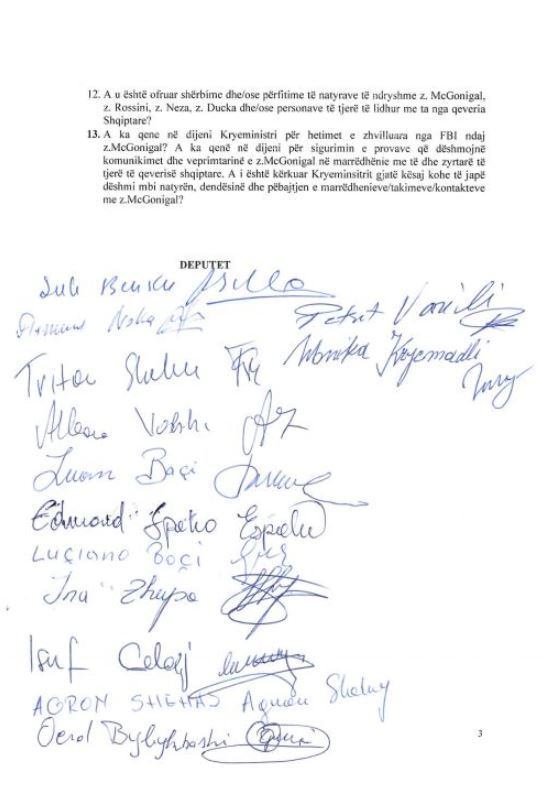 12. A u është ofruar shërbime dhe/ose përfitime të natyrave të ndryshme z. McGonigal,
z. Rossini, z. Neza, z. Ducka dhe/ose personave të tjerë të lidhur me ta nga qeveria
Shqiptare?
13. A ka qene në dijeni Kryeministri për hetimet e zhvilluara nga FBI ndaj
z.McGonigal? A ka qenë në dijeni për sigurimin e provave që dëshmojnë
komunikimet dhe veprimtarinë e z.McGonigal në marrëdhënie me të dhe zyrtarë të
tjerë të qeverisë shqiptare. A i është kërkuar Kryeminsitrit gjatë kësaj kohe të japë
dëshmi mbi natyrën, dendësinë dhe pëbajtjen e marrëdhenieve/takimeve/kontakteve
me z.McGonigal?
DEPUTET
Petrit Vasili
Monika Kryemadhi
Tritan Shehu
Albana Vokshi
Luan Baçi
Edmond Spaho Espaho
Luciano Boçi
Ina Zhupa
Isuf Çelaj
AGRON SHEHAJ Agron Shehaj
Oerd Bylykbashi
3